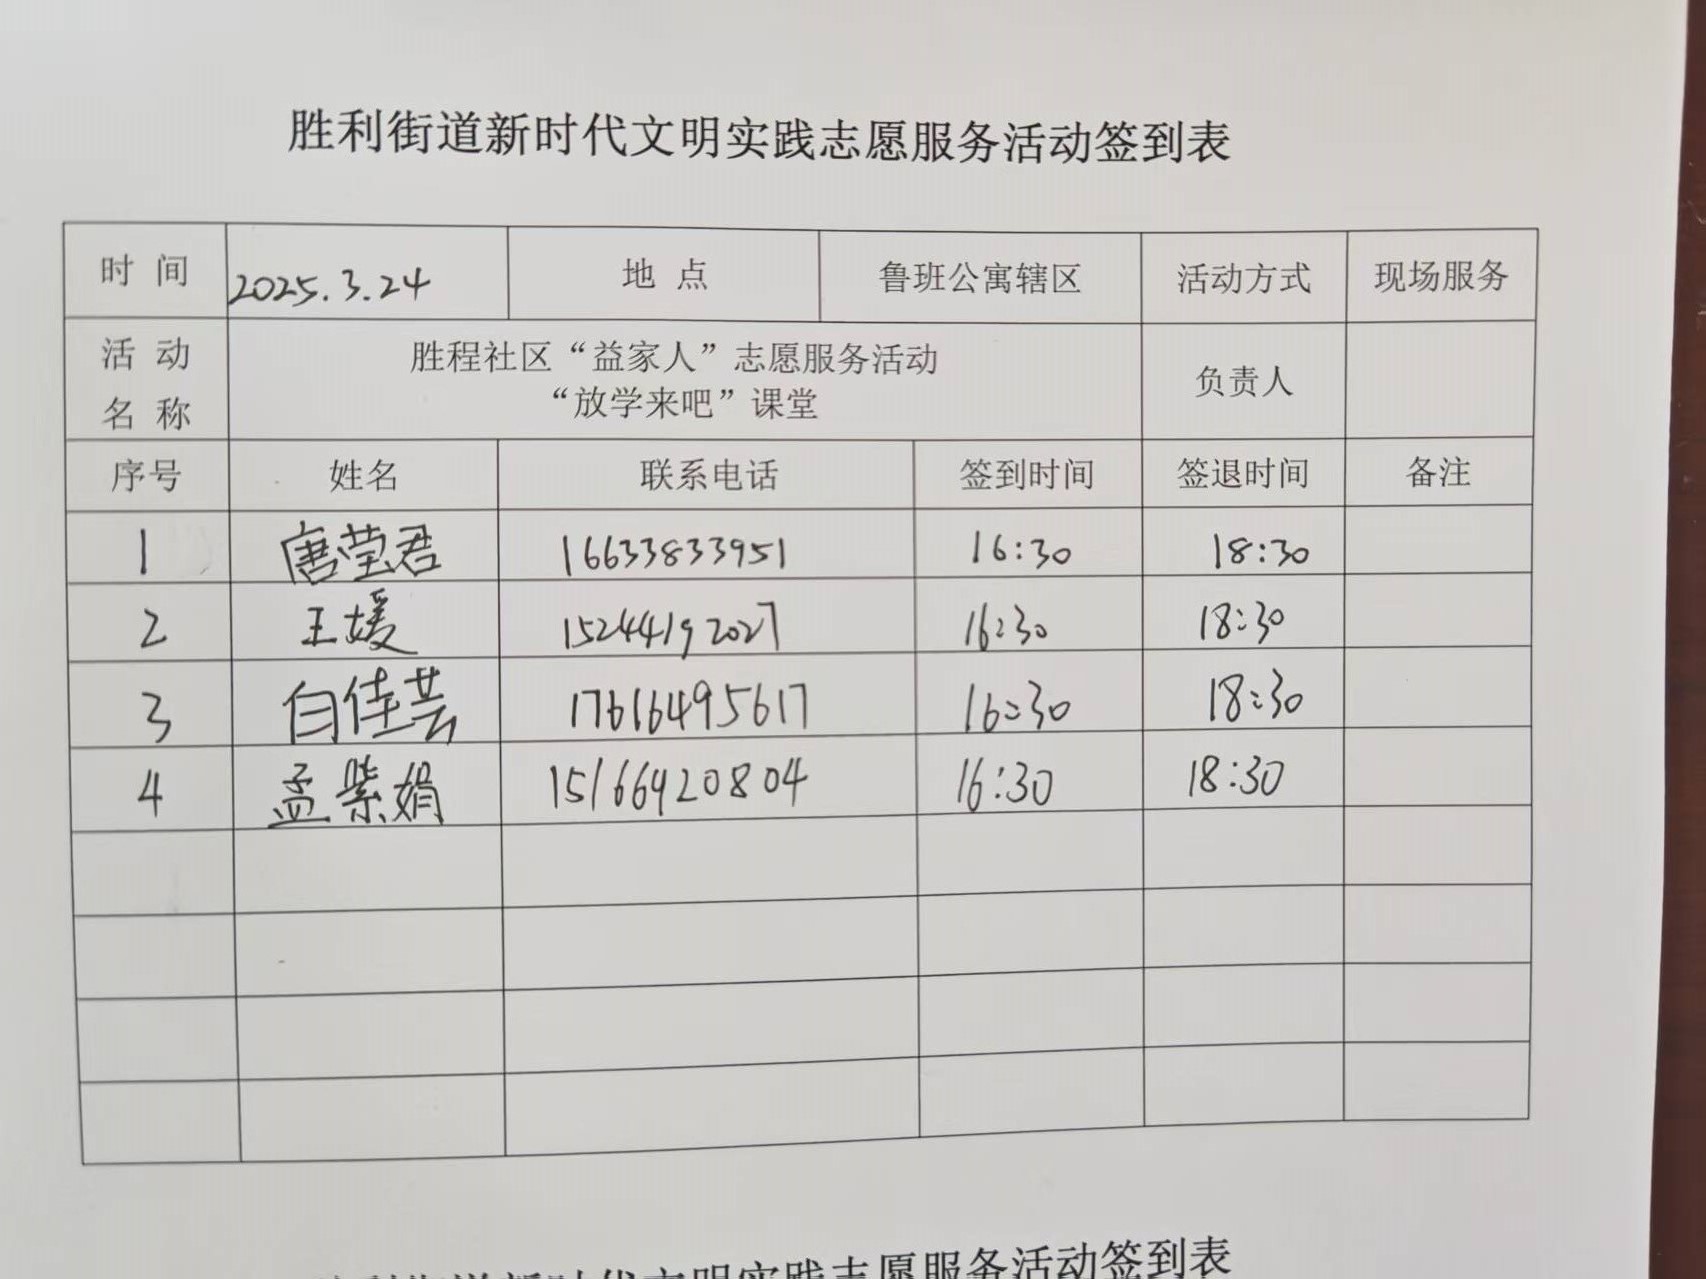 胜利街道新时代文明实践志愿服务活动签到表
时 间 2025.3.24 地 点 鲁班公寓辖区 活动方式 现场服务
活 动 名 称 胜程社区“益家人”志愿服务活动 负责人
“放学来吧”课堂
序号 姓名 联系电话 签到时间 签退时间 备注
1 唐莹君 16633833951 16:30 18:30
2 王媛 15244192027 16:30 18:30
3 白佳芸 17616495617 16:30 18:30
4 孟紫娟 15166920804 16:30 18:30
胜利街道新时代文明实践志愿服务活动签到表